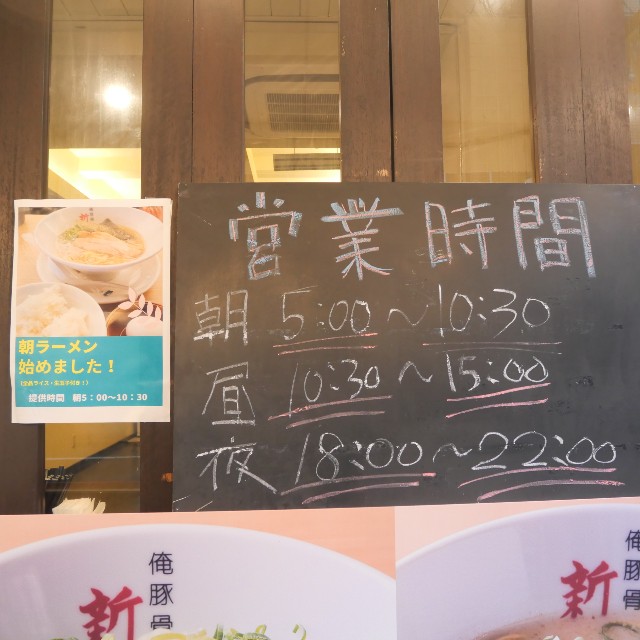 営業時間
朝 5:00～10:30
昼 10:30～15:00
夜 18:00～22:00
朝ラーメン
始めました！
提供時間 朝5：00～10：30
俺豚骨
新
俺豚骨
新